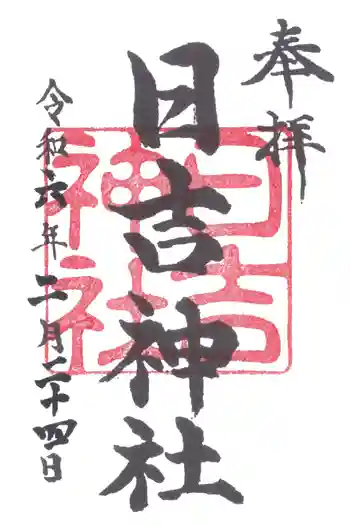 奉拝
日吉神社
日吉神社
令和六年二月二十四日